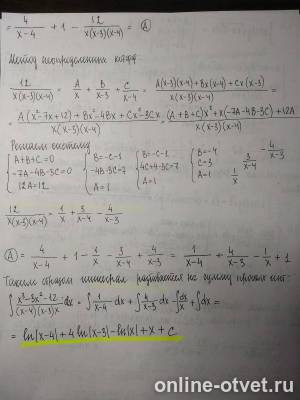 = 4/(x-4) + 1 - 12/(x(x-3)(x-4)) = (A)
Метод неопределенных коэфф
12/(x(x-3)(x-4)) = A/x + B/(x-3) + C/(x-4) = (A(x-3)(x-4) + Bx(x-4) + Cx(x-3))/(x(x-3)(x-4)) =
= (A(x²-7x+12) + Bx²-4Bx + Cx²-3Cx)/(x(x-3)(x-4)) = ((A+B+C)x² + x(-7A-4B-3C) + 12A)/(x(x-3)(x-4))
Решаем систему
{A+B+C=0 {B=-C-1 {B=-C-1 {B=-4
{-7A-4B-3C=0 {-4B-3C=7 {4C+4-3C=7 {C=3 3/(x-4) -4/(x-3)
{12A=12 {A=1 {A=1 {A=1 1/x
12/(x(x-3)(x-4)) = 1/x + 3/(x-4) - 4/(x-3)
(A) = 4/(x-4) + 1 - 1/x - 3/(x-4) + 4/(x-3) = 1/(x-4) + 4/(x-3) - 1/x + 1
Таким образом интеграл разбивается на сумму простых инт:
∫ (x³-3x²-12)/((x-4)(x-3)x) dx = ∫ 1/(x-4) dx + ∫ 4/(x-3) dx - ∫ dx/x + ∫ dx =
= ln|x-4| + 4 ln|x-3| - ln|x| + x + C
online-otvet.ru